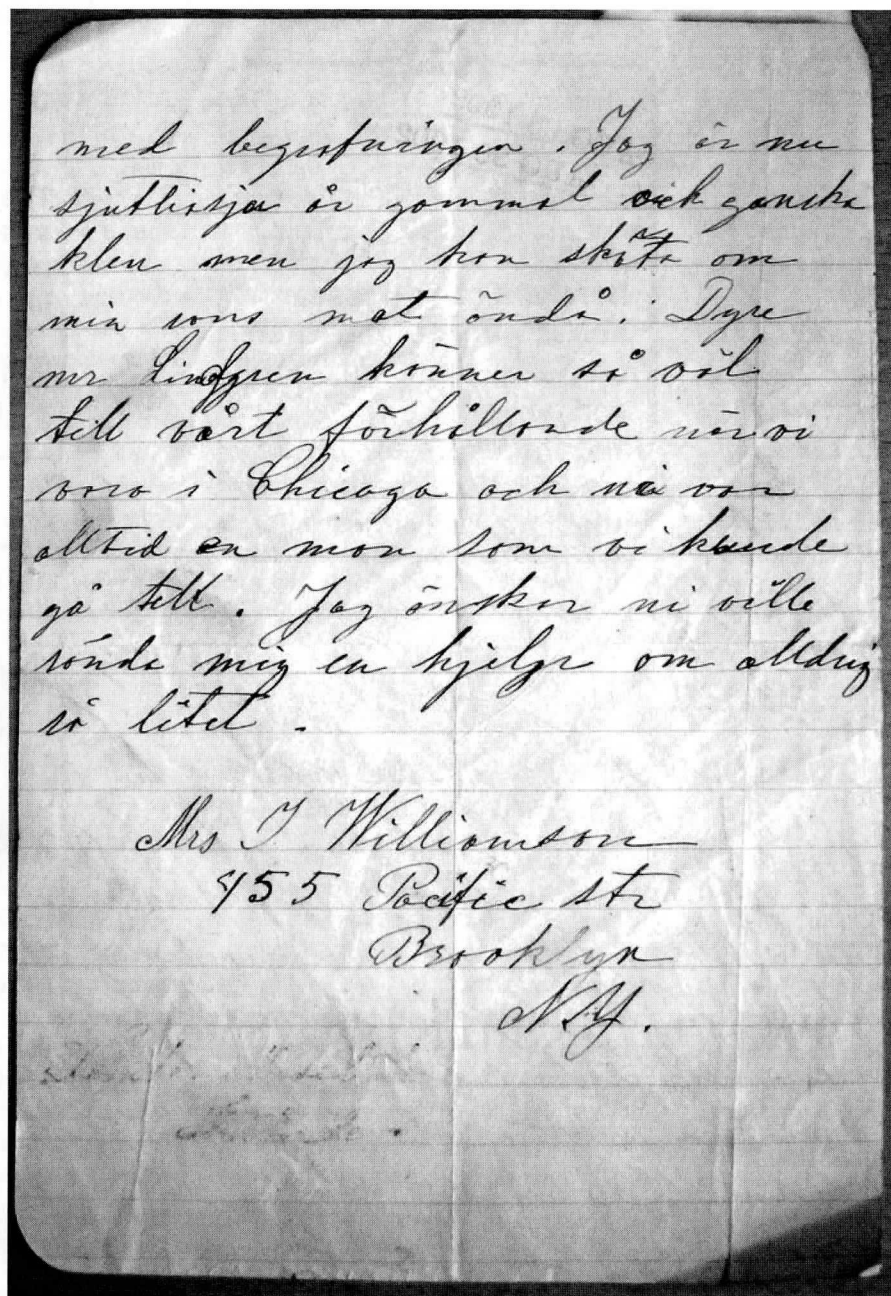 med begrafningen. Jag är nu
sjuttiosju år gammal och ganska
klen men jag kan sköta om
min sons mat ändå. Dyre
mr Lindgren känner så väl
till vårt förhållande när vi
voro i Chicago och ni var
alltid en man som vi kunde
gå till. Jag önskar ni ville
sända mig en hjelp om alldrig
så litet.
Mrs I Williamson
455 Pacific str
Brooklyn
N.Y.